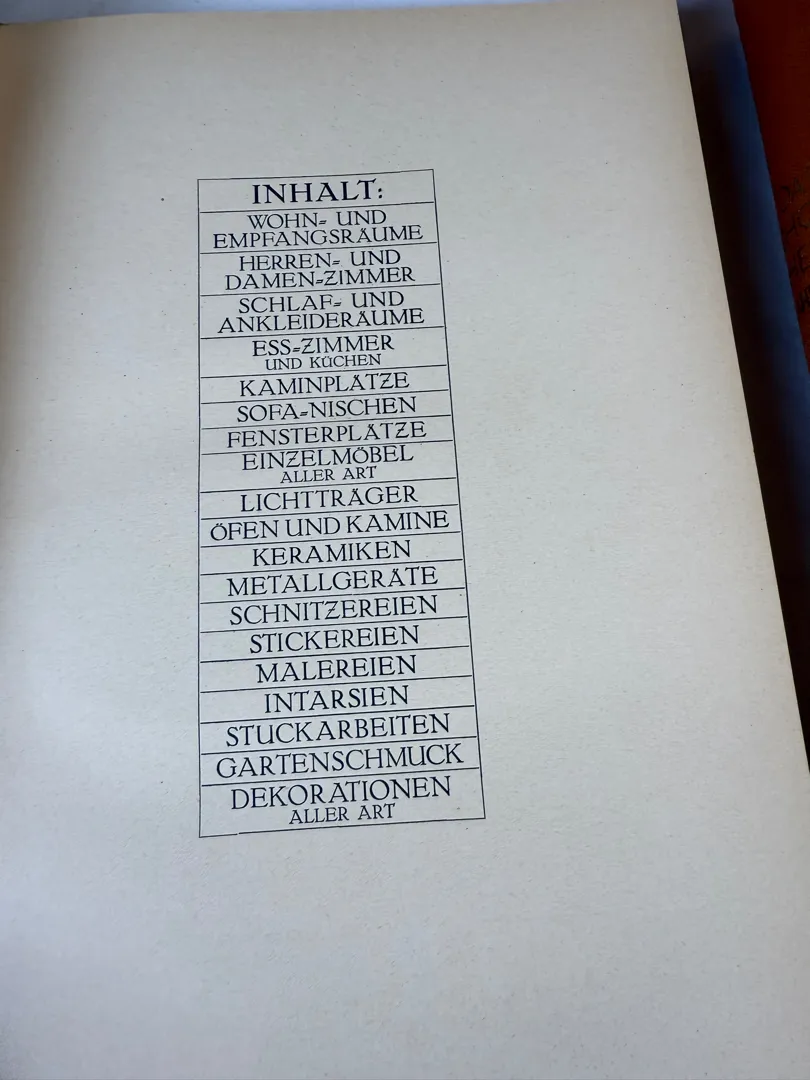 INHALT:
WOHN- UND
EMPFANGSRÄUME
HERREN- UND
DAMEN-ZIMMER
SCHLAF- UND
ANKLEIDERÄUME
ESS-ZIMMER
UND KÜCHEN
KAMINPLÄTZE
SOFA-NISCHEN
FENSTERPLÄTZE
EINZELMÖBEL
ALLER ART
LICHTTRÄGER
ÖFEN UND KAMINE
KERAMIKEN
METALLGERÄTE
SCHNITZEREIEN
STICKEREIEN
MALEREIEN
INTARSIEN
STUCKARBEITEN
GARTENSCHMUCK
DEKORATIONEN
ALLER ART